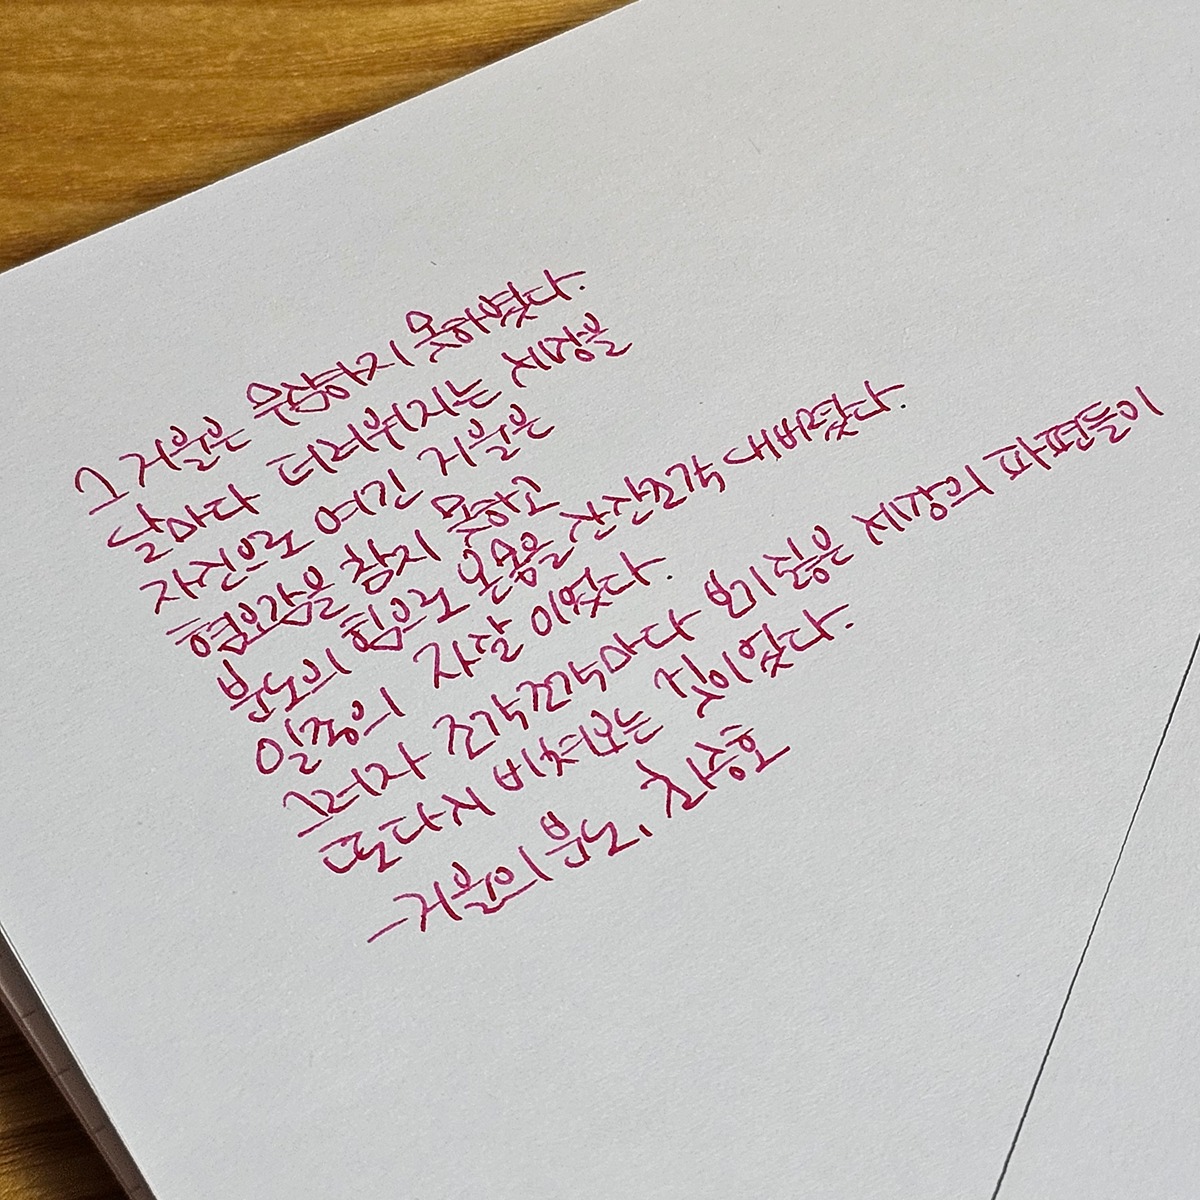 그 거울은 무장하지 못하였다.
날마다 더러워지는 세상을
자신으로 여긴 거울은
혐오감을 참지 못하고
분노의 힘으로 온몸을 산산조각 내버렸다.
일종의 자살이었다.
그러자 조각조각마다 보기 싫은 세상의 파편들이
또다시 비쳐보는 것이었다.
-거울의 분노, 최승호